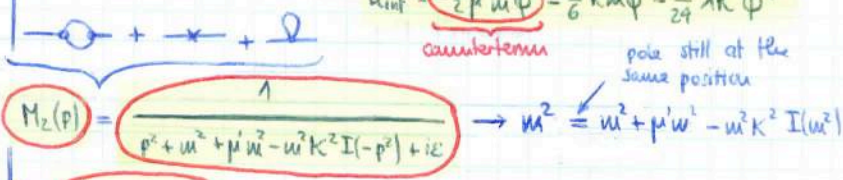 ½ μ' m² φ² - 1/6 κmφ³ - 1/24 λκ²φ⁴
counterterm
pole still at the
same position
M₂(p) = 1 / (p² + m² + μ'm² - m²κ² I(-p²) + iε) → m² = m² + μ'm² - m²κ² I(m²)